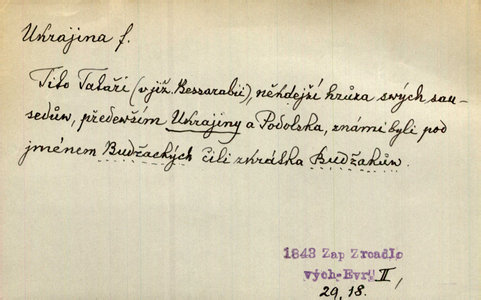 Ukrajina f.
Tito Tataři (v již. Bessarabii), někdejší hrůza swých sau-
sedůw, předewším Ukrajiny a Podolska, známi byli pod
jménem Budžackých čili zkrátka Budžakůw.
1843 Zap Zrcadlo
vých-Evr. II,
29, 18.